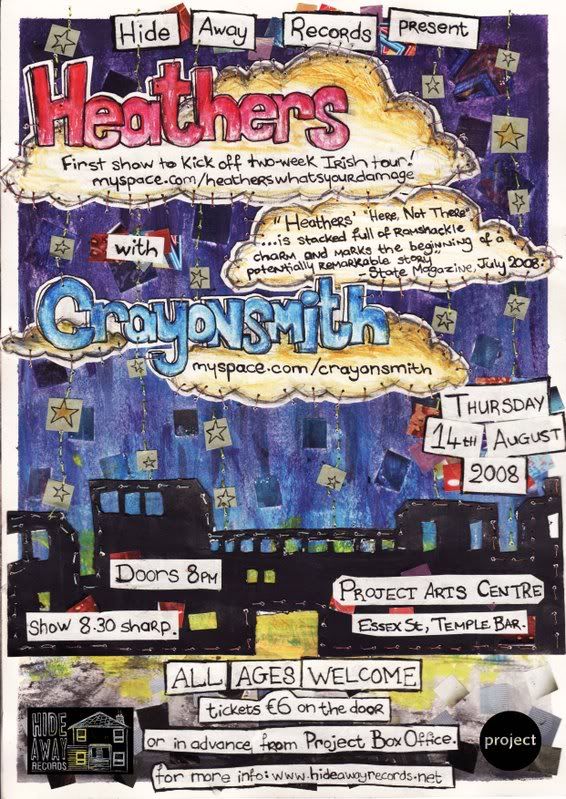 Hide Away Records present
Heathers
First show to kick off two-week Irish tour!
myspace.com/heatherswhatsyourdamage
"Heathers' 'Here, Not There'
...is stacked full of Ramshackle
charm and marks the beginning of a
potentially remarkable story"
-State Magazine, July 2008.
with
Crayonsmith
myspace.com/crayonsmith
THURSDAY
14TH AUGUST
2008
DOORS 8PM
PROJECT ARTS CENTRE
Show 8.30 sharp.
ESSEX ST, TEMPLE BAR.
ALL AGES WELCOME
tickets €6 on the door
or in advance from Project Box Office.
for more info: www.hideawayrecords.net
HIDE
AWAY
RECORDS
project